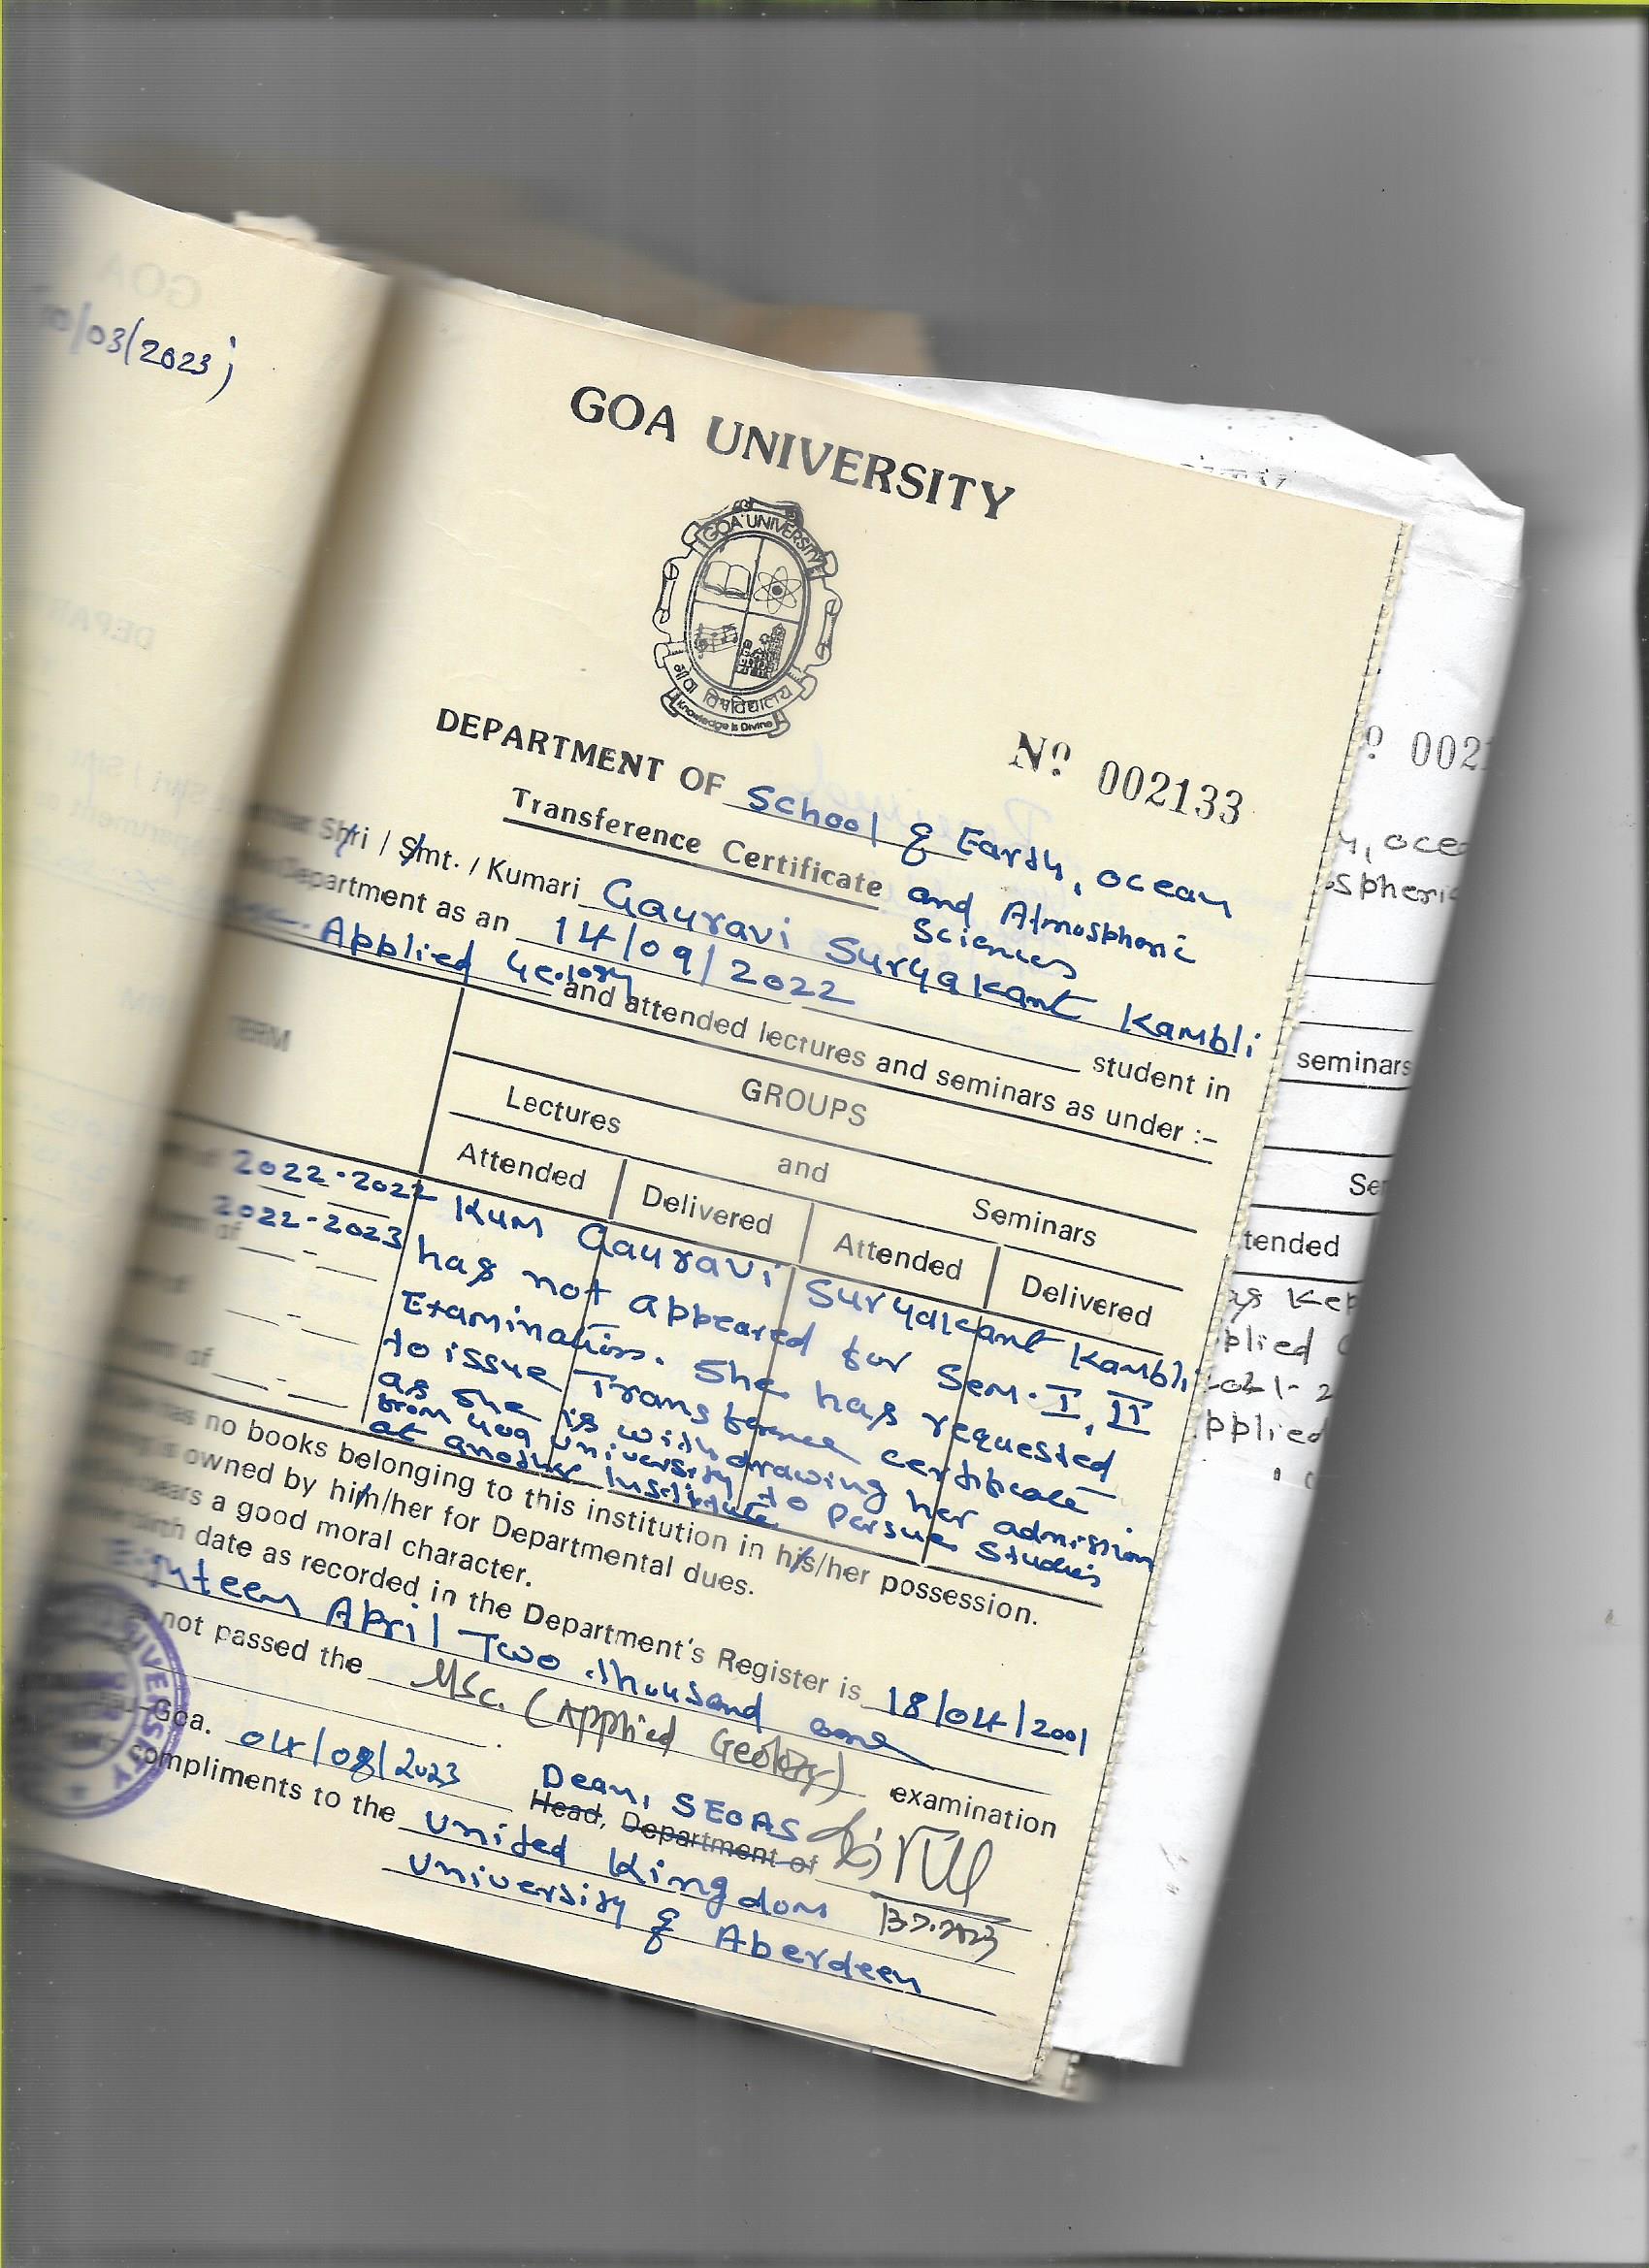 /03/2023)
GOA UNIVERSITY
GOA UNIVERSITY
गोंवा विश्वविद्यालय
Knowledge is Divine
Nº 002133
DEPARTMENT OF School of Earth, ocean
and Atmospheric
Sciences
Transference Certificate
Shri / Smt. / Kumari Gauravi Suryakant Kambli
Department as an 14/09/2022 student in
Applied Geology and attended lectures and seminars as under :-
TERM
GROUPS
Lectures and Seminars
Attended Delivered Attended Delivered
2022-2022
2022-2023
Kum Gauravi Suryakant Kambli
has not appeared for Sem. I, II
Examination. She has requested
to issue Transference certificate
as she is withdrawing her admission
from Goa University to Persue Studies
at another Institute
has no books belonging to this institution in his/her possession.
is owned by him/her for Departmental dues.
bears a good moral character.
birth date as recorded in the Department's Register is 18/04/2001
Eighteen April Two thousand one
not passed the Msc. (Applied Geology) examination
Goa.
04/08/2023
Dean, SEOAS
Head, Department of
13.7.2023
compliments to the United Kingdom
University of Aberdeen
UNIVERSITY
º 002
, ocea
ospheric
seminars
Se
tended
as Kep
pplied
pplied